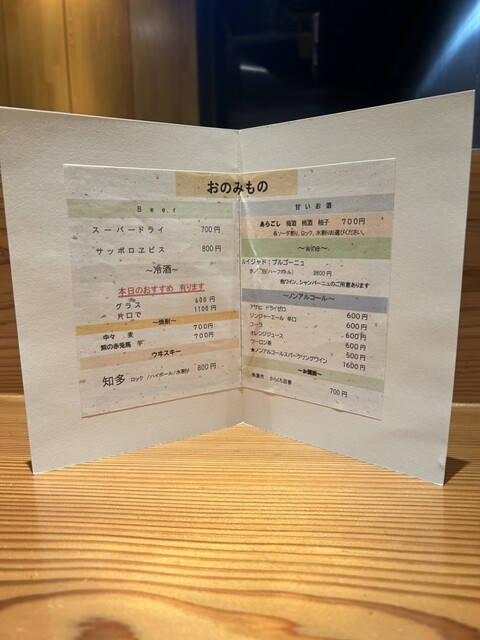 おのみもの
Beer
スーパードライ 700円
サッポロヱビス 800円
～冷酒～
本日のおすすめ 有ります
グラス 600円
片口で 1100円
～焼酎～
中々 麦 700円
熊の赤兎馬 芋 700円
ウヰスキー
知多 ロック/ハイボール/水割り 800円
甘いお酒
あらごし 梅酒 桃酒 柚子 700円
各ソーダ割り、ロック、水割りお選びください。
～wine～
ルイジャド:ブルゴーニュ
赤/白(ハーフボトル) 3800円
他ワイン、シャンパーニュのご用意あります
～ノンアルコール～
アサヒ ドライゼロ 600円
ジンジャーエール 辛口 600円
コーラ 600円
オレンジジュース 600円
ウーロン茶 500円
★ノンアルコールスパークリングワイン 1600円
700円